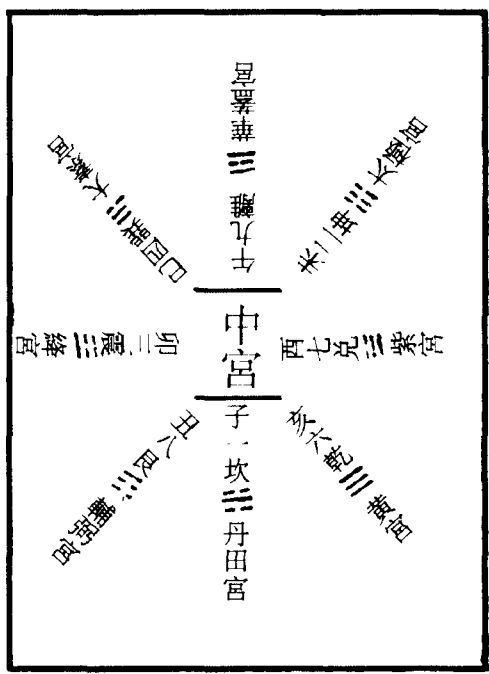 午九離☲華蓋宮
未二坤☷太宮
酉七兌☱紫宮
亥六乾☰黃宮
子一坎☵丹田宮
丑八艮☶宮
卯三震☳絳宮
巳四巽☴太宮
中宮